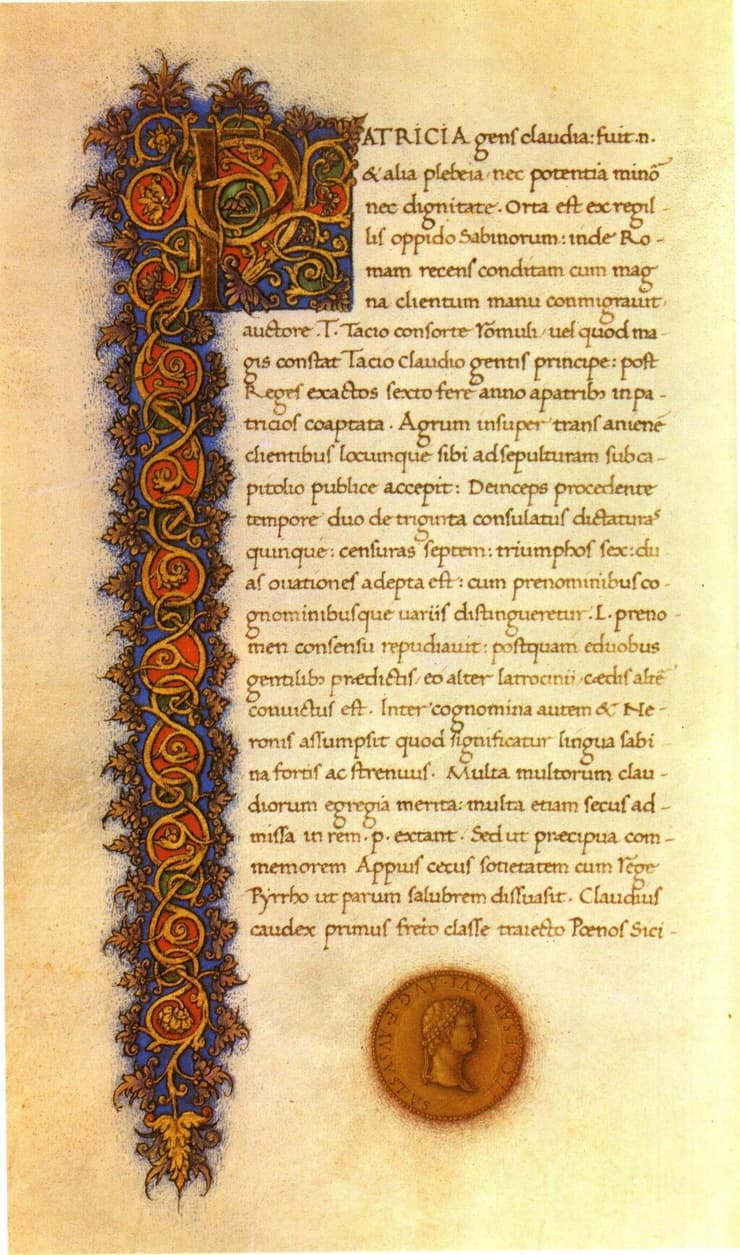 PATRICIA gens claudia: fuit .n.
& alia plebeia nec potentia minō
nec dignitate. Orta est ex regil-
lis oppido Sabinorum: inde Ro-
mam recens conditam cum mag
na clientum manu conmigrauit
auctore .T. Tacio consorte rōmuli uel quod ma
gis constat Tacio Claudio gentis principe: post
Reges exactos sexto fere anno a patribꝫ in pa-
tricios coaptata. Agrum insuper trans anienē
clientibus locumque sibi ad sepulturam sub ca-
pitolio publice accepit: Deinceps procedente
tempore duo de triginta consulatus dictaturas
quinque: censuras septem: triumphos sex: du
as ouationes adepta est: cum prenominibus co-
gnominibusque uariis distingueretur .L. preno-
men consensu repudiauit: postquam e duobus
gentilibꝫ prædictis eo alter latrocinii cædis altē
conuictus est. Inter cognomina autem & Ne-
ronis assumpsit quod significatur lingua sabi
na fortis ac strenuus. Multa multorum clau-
diorum egregia merita: multa etiam secus ad-
missa in rem .p. extant. Sed ut præcipua com-
memorem Appius cecus sotietatem cum rēge
Pyrrho ut parum salubrem dissuasit. Claudius
caudex primus freto classe traiecto Pœnos Sici-
CAESAR DIVI AVG F AVGVSTVS